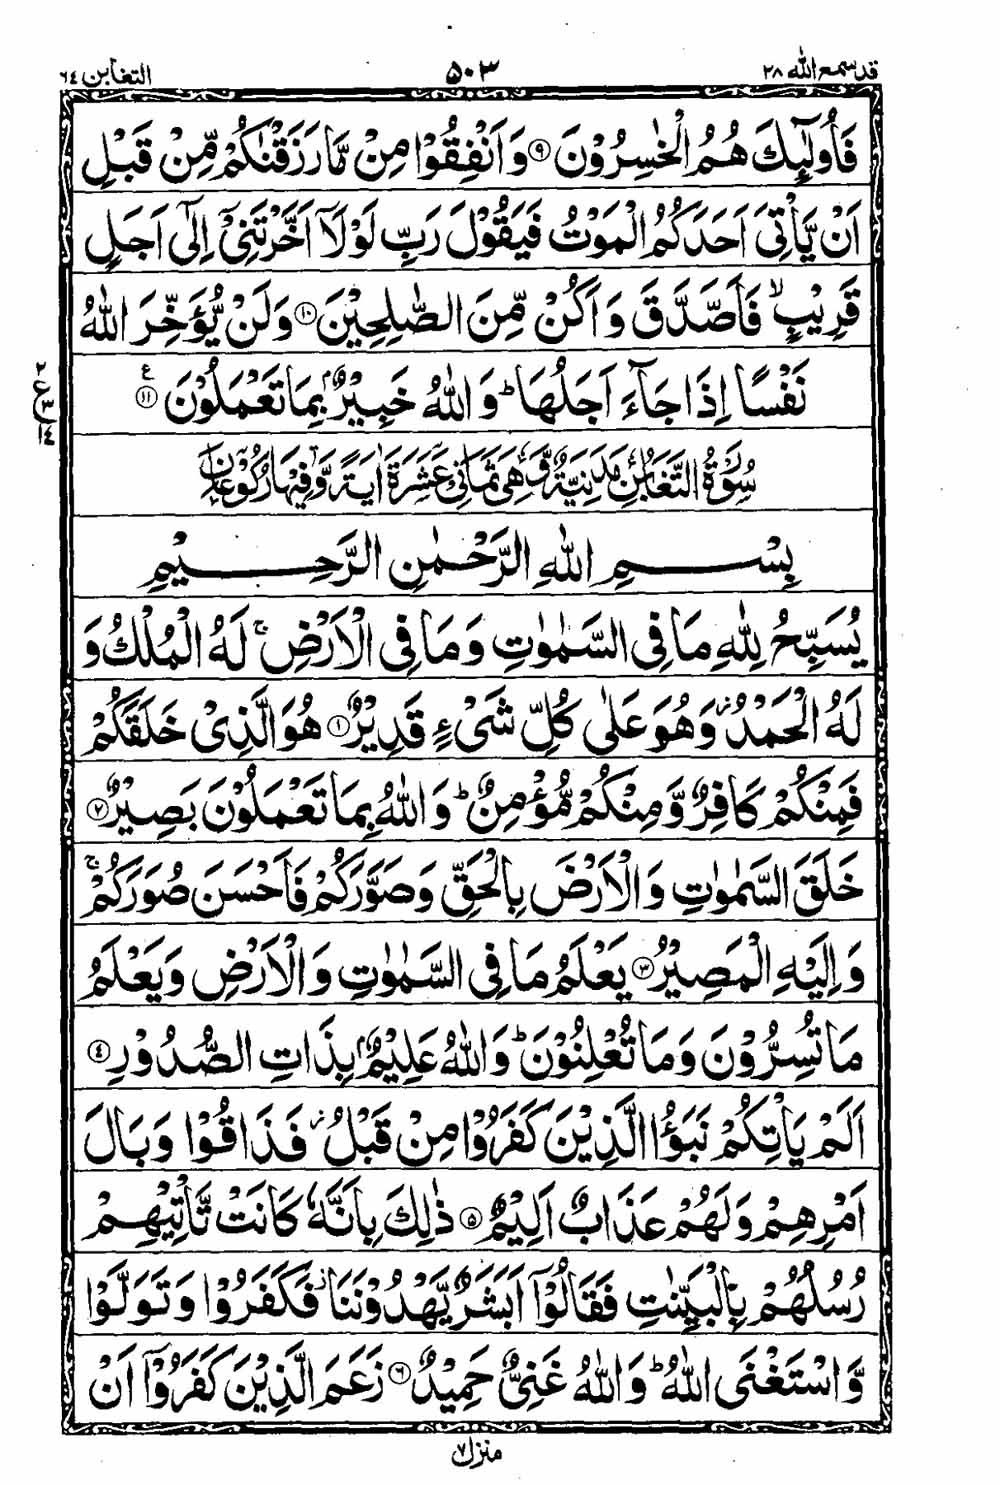 قد سمع الله ٢٨
۵۰۳
التغابن ٦٤
فَاُولٰٓئِكَ هُمُ الْخٰسِرُوْنَ ۹ وَاَنْفِقُوْا مِنْ مَّا رَزَقْنٰكُمْ مِّنْ قَبْلِ
اَنْ يَّاْتِىَ اَحَدَكُمُ الْمَوْتُ فَيَقُوْلَ رَبِّ لَوْلَآ اَخَّرْتَنِىْٓ اِلٰٓى اَجَلٍ
قَرِيْبٍ ۙ فَاَصَّدَّقَ وَاَكُنْ مِّنَ الصّٰلِحِيْنَ ۱۰ وَلَنْ يُّؤَخِّرَ اللّٰهُ
نَفْسًا اِذَا جَآءَ اَجَلُهَا ؕ وَاللّٰهُ خَبِيْرٌۢ بِمَا تَعْمَلُوْنَ ۱۱ ع
۲
ع
۳
۱۴
سُوْرَةُ التَّغَابُنِ مَدَنِيَّةٌ وَّهِىَ ثَمَانِىْ عَشَرَةَ اٰيَةً وَّفِيْهَا رُكُوْعَانِ
بِسْمِ اللّٰهِ الرَّحْمٰنِ الرَّحِيْمِ
يُسَبِّحُ لِلّٰهِ مَا فِى السَّمٰوٰتِ وَمَا فِى الْاَرْضِ ۚ لَهُ الْمُلْكُ وَ
لَهُ الْحَمْدُ ؗ وَهُوَ عَلٰى كُلِّ شَىْءٍ قَدِيْرٌ ۱ هُوَ الَّذِىْ خَلَقَكُمْ
فَمِنْكُمْ كَافِرٌ وَّمِنْكُمْ مُّؤْمِنٌ ؕ وَاللّٰهُ بِمَا تَعْمَلُوْنَ بَصِيْرٌ ۲
خَلَقَ السَّمٰوٰتِ وَالْاَرْضَ بِالْحَقِّ وَصَوَّرَكُمْ فَاَحْسَنَ صُوَرَكُمْ ۚ
وَاِلَيْهِ الْمَصِيْرُ ۳ يَعْلَمُ مَا فِى السَّمٰوٰتِ وَالْاَرْضِ وَيَعْلَمُ
مَا تُسِرُّوْنَ وَمَا تُعْلِنُوْنَ ؕ وَاللّٰهُ عَلِيْمٌۢ بِذَاتِ الصُّدُوْرِ ٤
اَلَمْ يَاْتِكُمْ نَبَؤُا الَّذِيْنَ كَفَرُوْا مِنْ قَبْلُ ؗ فَذَاقُوْا وَبَالَ
اَمْرِهِمْ وَلَهُمْ عَذَابٌ اَلِيْمٌ ۵ ذٰلِكَ بِاَنَّهٗ كَانَتْ تَّاْتِيْهِمْ
رُسُلُهُمْ بِالْبَيِّنٰتِ فَقَالُوْٓا اَبَشَرٌ يَّهْدُوْنَنَا ؗ فَكَفَرُوْا وَتَوَلَّوْا
وَّاسْتَغْنَى اللّٰهُ ؕ وَاللّٰهُ غَنِىٌّ حَمِيْدٌ ٦ زَعَمَ الَّذِيْنَ كَفَرُوْٓا اَنْ
منزل ۷